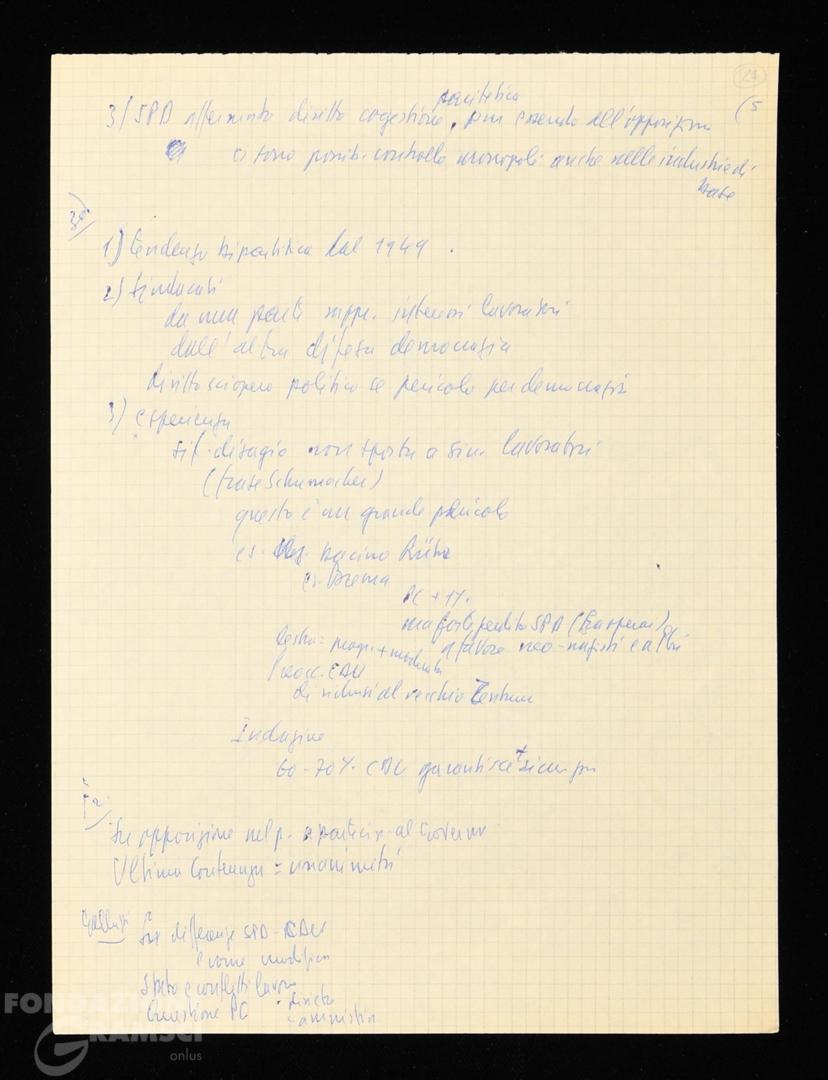 21
(5
paritetica
3/ SPD affermato diritto cogestione, pur essendo all'opposizione
ci sono possib. controllo monopoli anche nelle industrie di
base
3a)
1) tendenza bipartitica dal 1949.
2) Sindacati
da una parte rappr. interessi lavoratori
dall'altra difesa democrazia
diritto sciopero politico se pericolo per democrazia
3) esperienza
sit. disagio non sposta a sin. lavoratori
(frase Schumacher)
questo è un grande pericolo
es. bacino Ruhr
es. Brema
PC + 1%.
ma forte perdita SPD (tra operai)
a favore neo-nazisti e altri
+ moderati
CDU
da ridursi al vecchio Zentrum
Indagine
60-70% CDU garantisce + sicur.
Su opposizione nel p. a partecip. al Governo
Ultima Conferenza = unanimità
Galluzzi
Su differenze SPD-CDU
e come modifica
Stato e conflitti lavoro
Questione PC
divieto
amnistia
FONDAZIONE
GRAMSCI
onlus